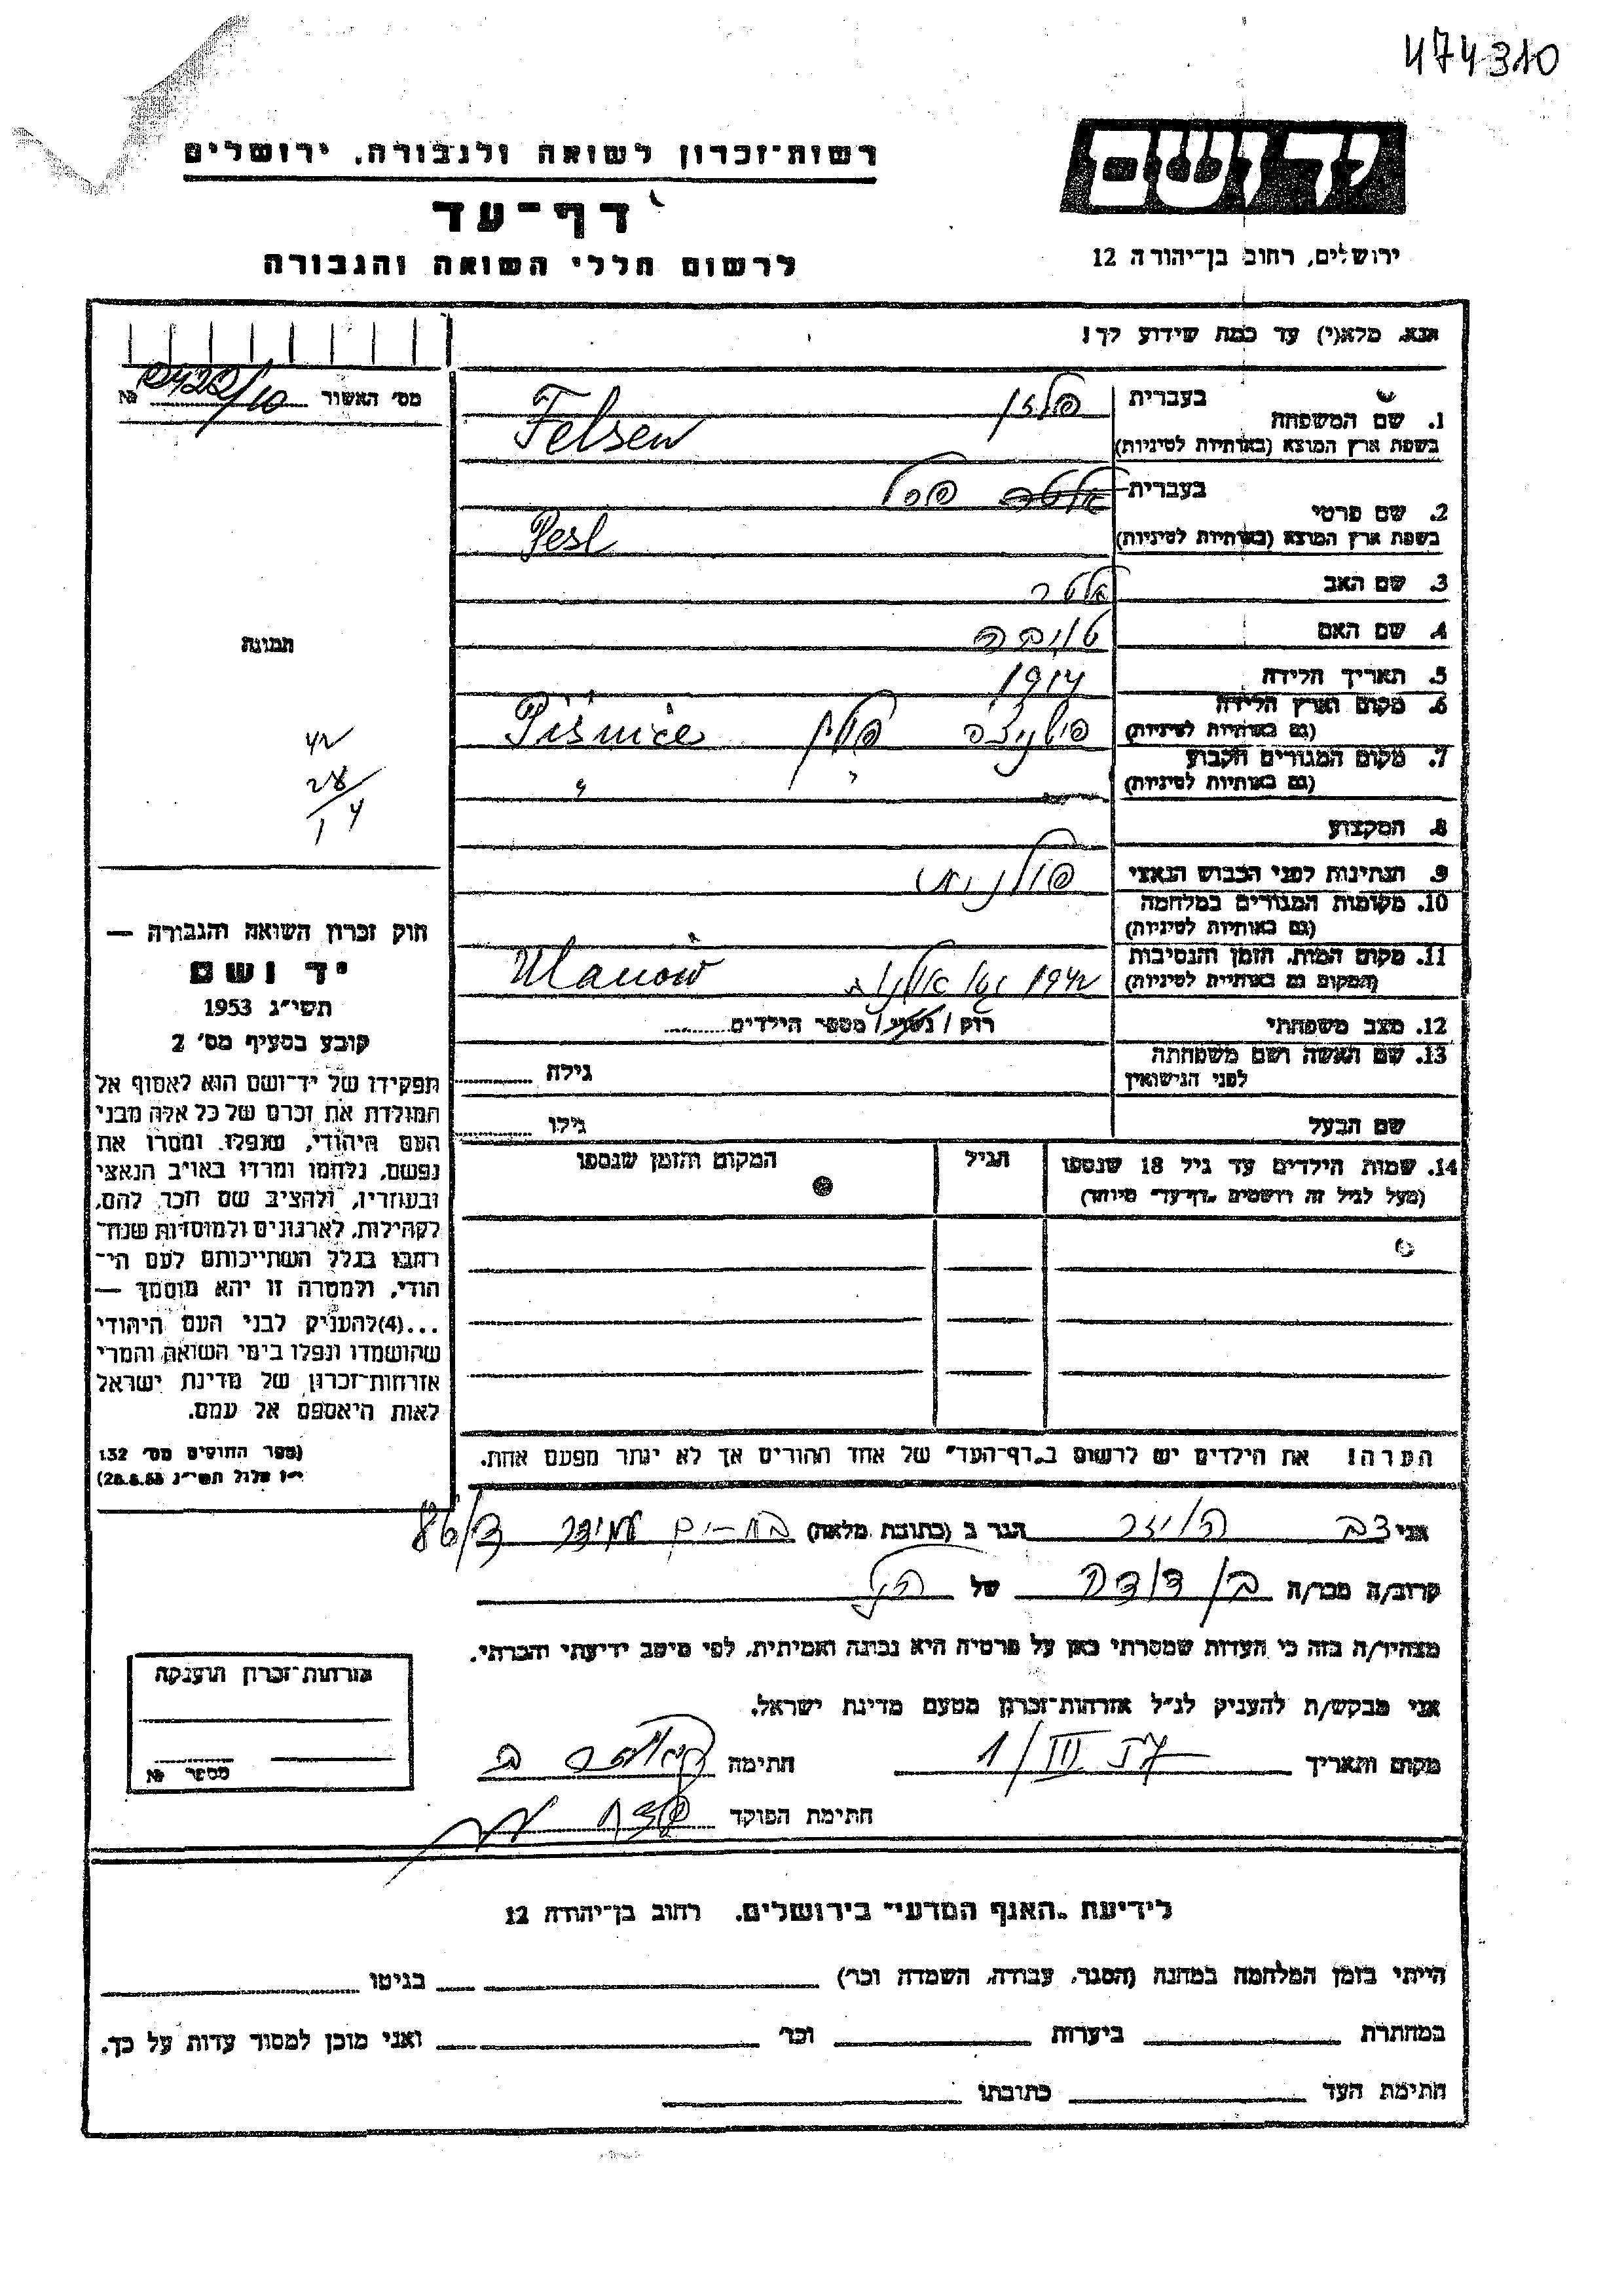 474310
יד ושם
רשות־זכרון לשואה ולגבורה, ירושלים
דף־עד
לרשום חללי השואה והגבורה
ירושלים, רחוב בן־יהודה 12
אנא, מלא(י) עד כמה שידוע לך!
מס׳ האשור №
1. שם המשפחה
בעברית פלזן
בשפת ארץ המוצא (באותיות לטיניות) Felsen
2. שם פרטי
בעברית פסל
בשפת ארץ המוצא (באותיות לטיניות) Pesl
3. שם האב אלטר
4. שם האם טויבה
5. תאריך הלידה 1914
6. מקום וארץ הלידה (גם באותיות לטיניות) פישניצה פולין Piśnice
7. מקום המגורים הקבוע (גם באותיות לטיניות) " "
8. המקצוע
9. הנתינות לפני הכבוש הנאצי פולנית
10. מקומות המגורים במלחמה (גם באותיות לטיניות)
11. מקום המות, הזמן והנסיבות (המקום גם באותיות לטיניות) 1942 גטו אולנוב Ulanów
12. מצב משפחתי רוק / נשוי / מספר הילדים
13. שם האשה ושם משפחתה לפני הנישואין
גילה
שם הבעל
גילו
14. שמות הילדים עד גיל 18 שנספו
(מעל לגיל זה רושמים „דף־עד" מיוחד)
הגיל
המקום והזמן שנספו
הערה! את הילדים יש לרשום ב„דף־העד" של אחד ההורים אך לא יותר מפעם אחת.
תמונה
42
28
1 4
חוק זכרון השואה והגבורה —
יד ושם
תשי״ג 1953
קובע בסעיף מס׳ 2
תפקידו של יד־ושם הוא לאסוף אל
המולדת את זכרם של כל אלה מבני
העם היהודי, שנפלו, ומסרו את
נפשם, נלחמו ומרדו באויב הנאצי
ובעוזריו, ולהציב שם וזכר להם,
לקהילות, לארגונים ולמוסדות שנח־
רחבו בגלל השתייכותם לעם הי־
הודי, ולמטרה זו יהא מוסמך —
...(4)להעניק לבני העם היהודי
שהושמדו ונפלו בימי השואה והמרי
אזרחות־זכרון של מדינת ישראל
לאות היאספם אל עמם.
(ספר החוקים מס׳ 132
י״ז אלול תשי״ג 28.8.53)
אני הגר ב (כתובת מלאה) בת־ים עמידר 86
קרוב/ה מכר/ה בן דודה של הנ״ל
מצהיר/ה בזה כי העדות שמסרתי כאן על פרטיה היא נכונה ואמיתית, לפי מיטב ידיעתי והכרתי.
אני מבקש/ת להעניק לנ״ל אזרחות־זכרון מטעם מדינת ישראל.
מקום ותאריך 1/III 57 חתימה
חתימת הפוקד
אזרחות־זכרון הוענקה
מספר №
לידיעת „האגף המדעי" בירושלים, רחוב בן־יהודה 12
הייתי בזמן המלחמה במחנה (הסגר, עבודה, השמדה וכו׳) בגיטו
במחתרת ביערות וכו׳ ואני מוכן למסור עדות על כך.
חתימת העד כתובתו